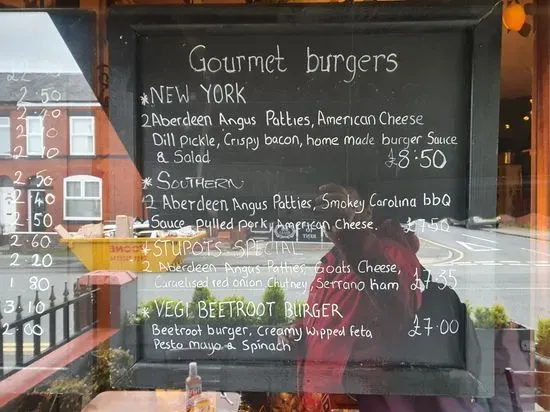 Gourmet burgers
*NEW YORK
2 Aberdeen Angus Patties, American Cheese
Dill Pickle, Crispy bacon, home made burger Sauce
& Salad £8:50
*SOUTHERN
2 Aberdeen Angus Patties, Smokey Carolina bbQ
Sauce, pulled pork, American Cheese. £7:50
*STUPOTS SPECIAL
2 Aberdeen Angus Patties, Goats Cheese,
Caruelised red onion Chutney, Serrano ham £7:35
*VEGI BEETROOT BURGER
Beetroot burger, Creamy Wipped feta £7:00
Pesto mayo & Spinach
2.50
2.40
2.10
2.50
2.40
2.50
2.60
2.20
1.80
3.10
2.00